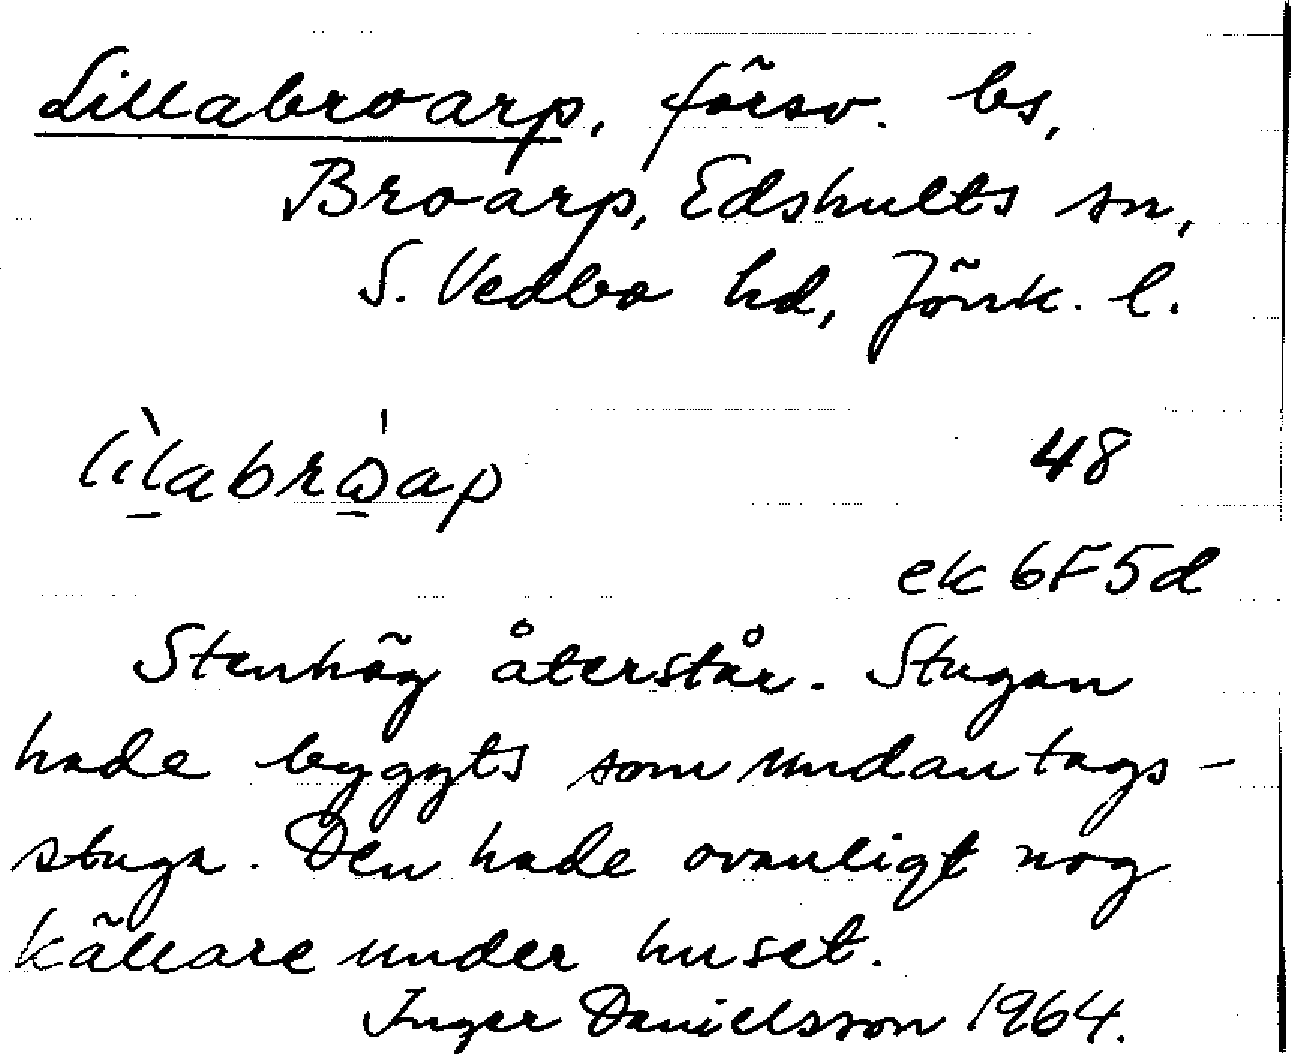 Lillabroarp, försv. bs,
Broarp, Edshults sn,
S. Vedbo hd, Jönk. l.
48
ek 6F5d
Stenhög återstår. Stugan
hade byggts som undantags-
stuga. Den hade ovanligt nog
källare under huset.
Inger Danielsson 1964.